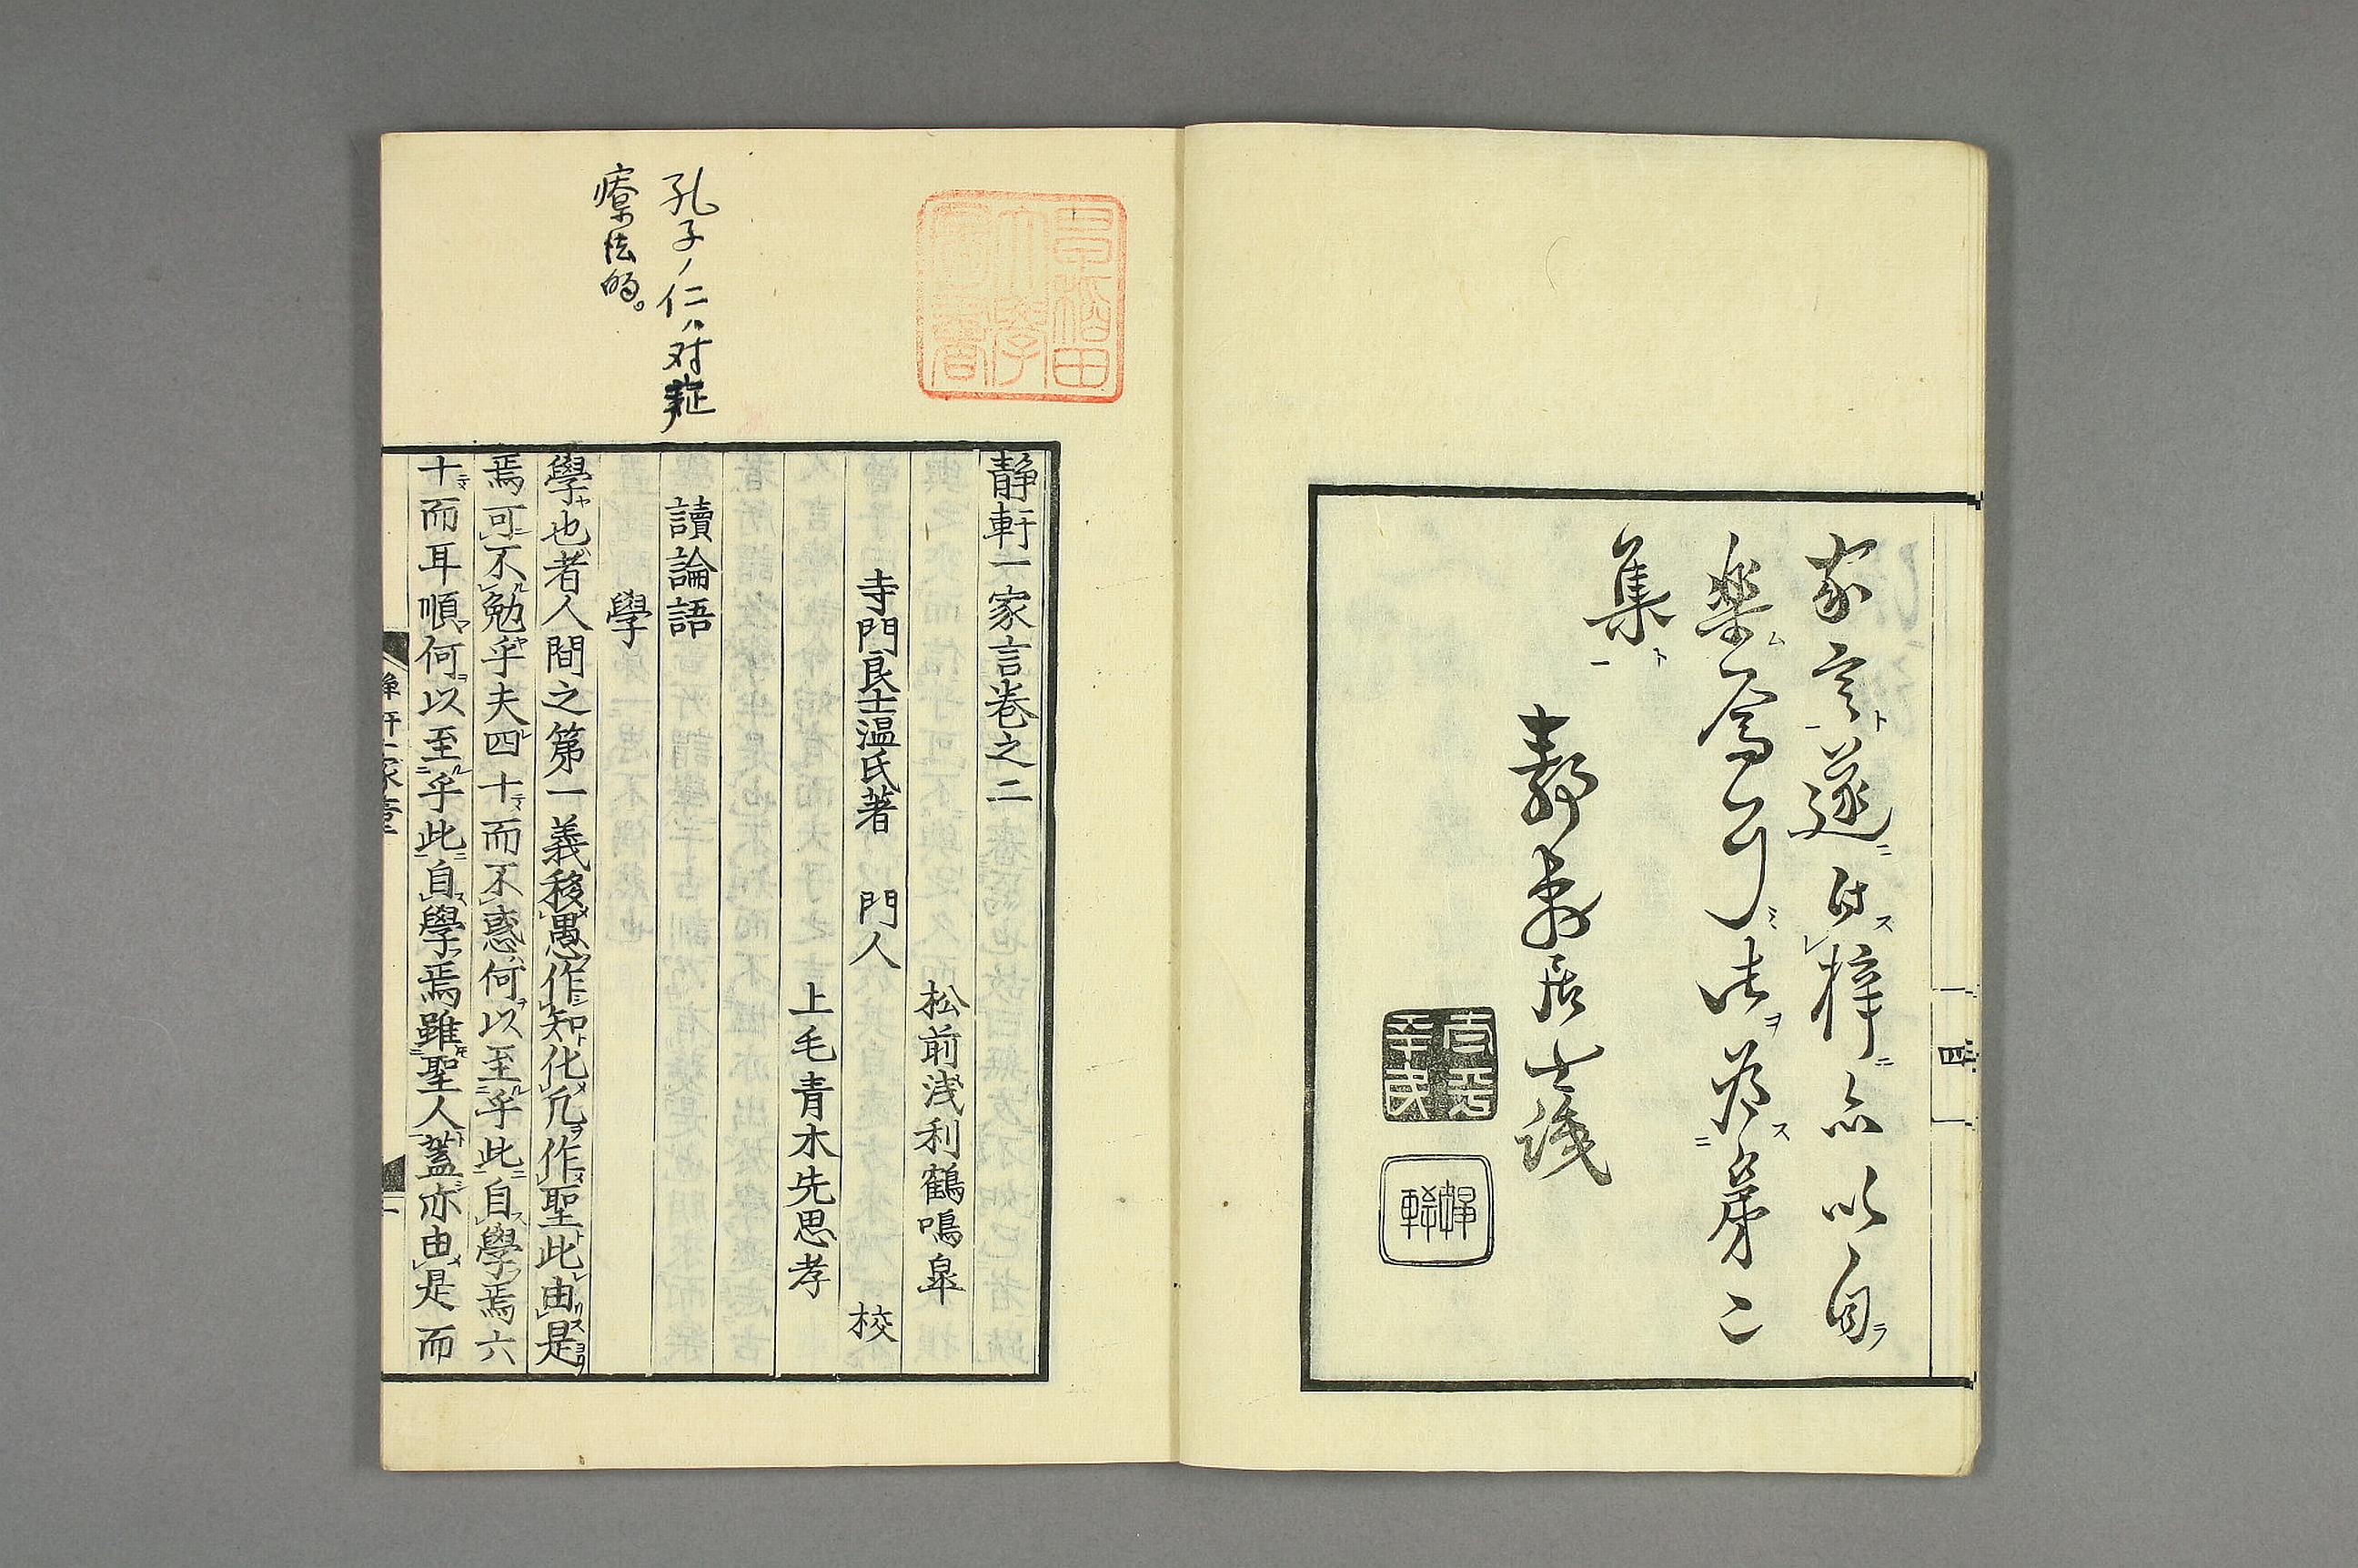 家言遂付梓亦以自
樂 為第二
集
靜軒居士識
四
早稻田
大學
圖書
孔子ノ仁ハ対症
療法的。
静軒一家言巻之二
松前浅利鶴鳴皐
寺門良士温氏著 門人 校
上毛青木先思孝
讀論語
學
學也者人間之第一義移愚作知化凡作聖此由是
焉可不勉乎夫四十而不惑何以至乎此自學焉六
十而耳順何以至乎此自學焉雖聖人蓋亦由是而